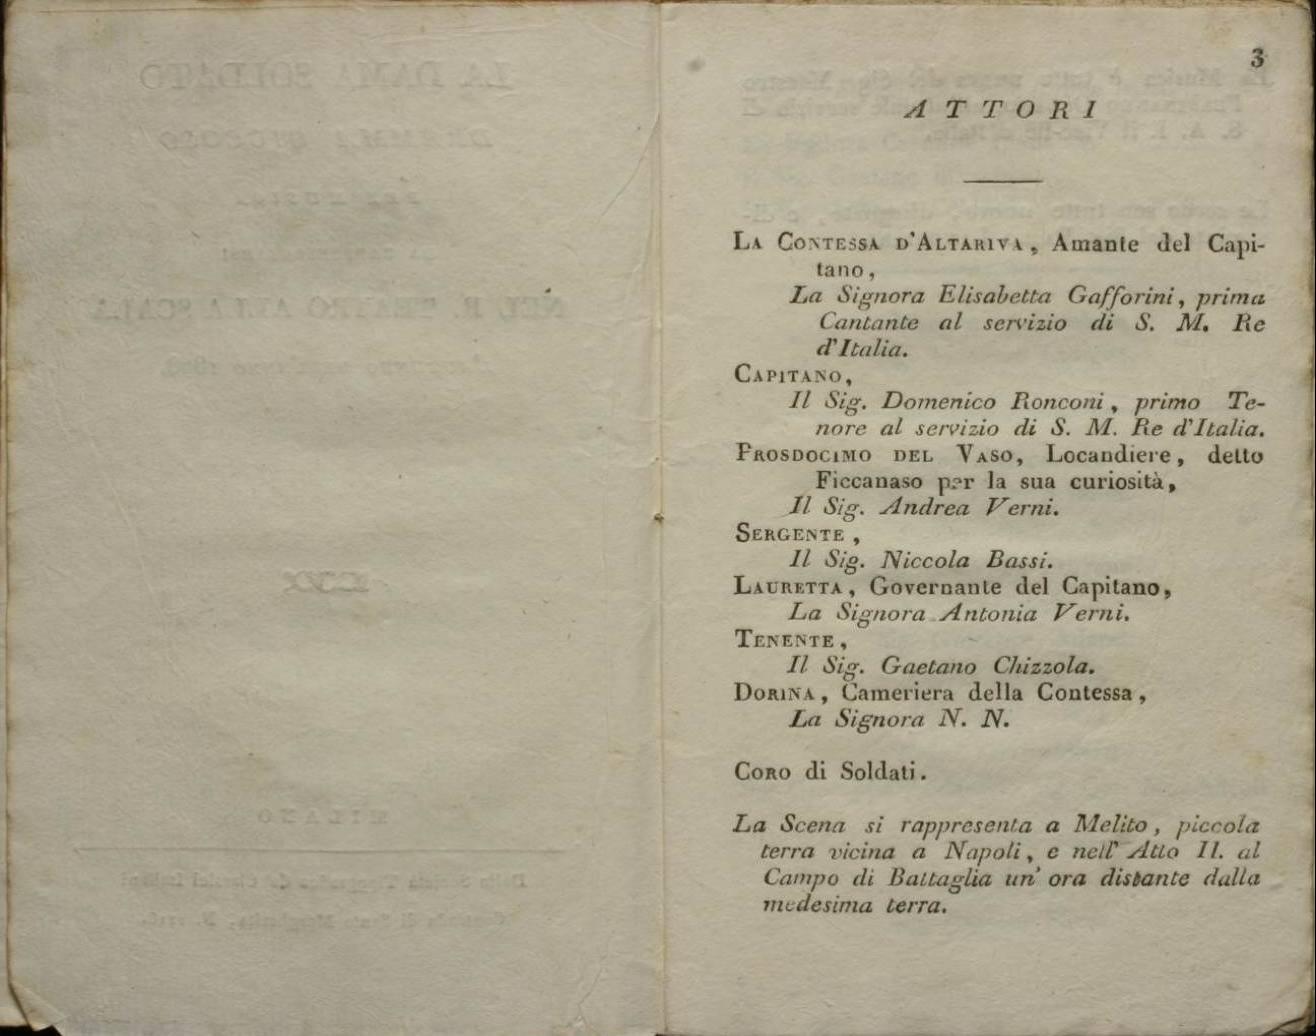 3
ATTORI
LA CONTESSA D'ALTARIVA, Amante del Capi-
tano,
La Signora Elisabetta Gafforini, prima
Cantante al servizio di S. M. Re
d'Italia.
CAPITANO,
Il Sig. Domenico Ronconi, primo Te-
nore al servizio di S. M. Re d'Italia.
PROSDOCIMO DEL VASO, Locandiere, detto
Ficcanaso per la sua curiosità,
Il Sig. Andrea Verni.
SERGENTE,
Il Sig. Niccola Bassi.
LAURETTA, Governante del Capitano,
La Signora Antonia Verni.
TENENTE,
Il Sig. Gaetano Chizzola.
DORINA, Cameriera della Contessa,
La Signora N. N.
CORO di Soldati.
La Scena si rappresenta a Melito, piccola
terra vicina a Napoli, e nell' Atto II. al
Campo di Battaglia un' ora distante dalla
medesima terra.